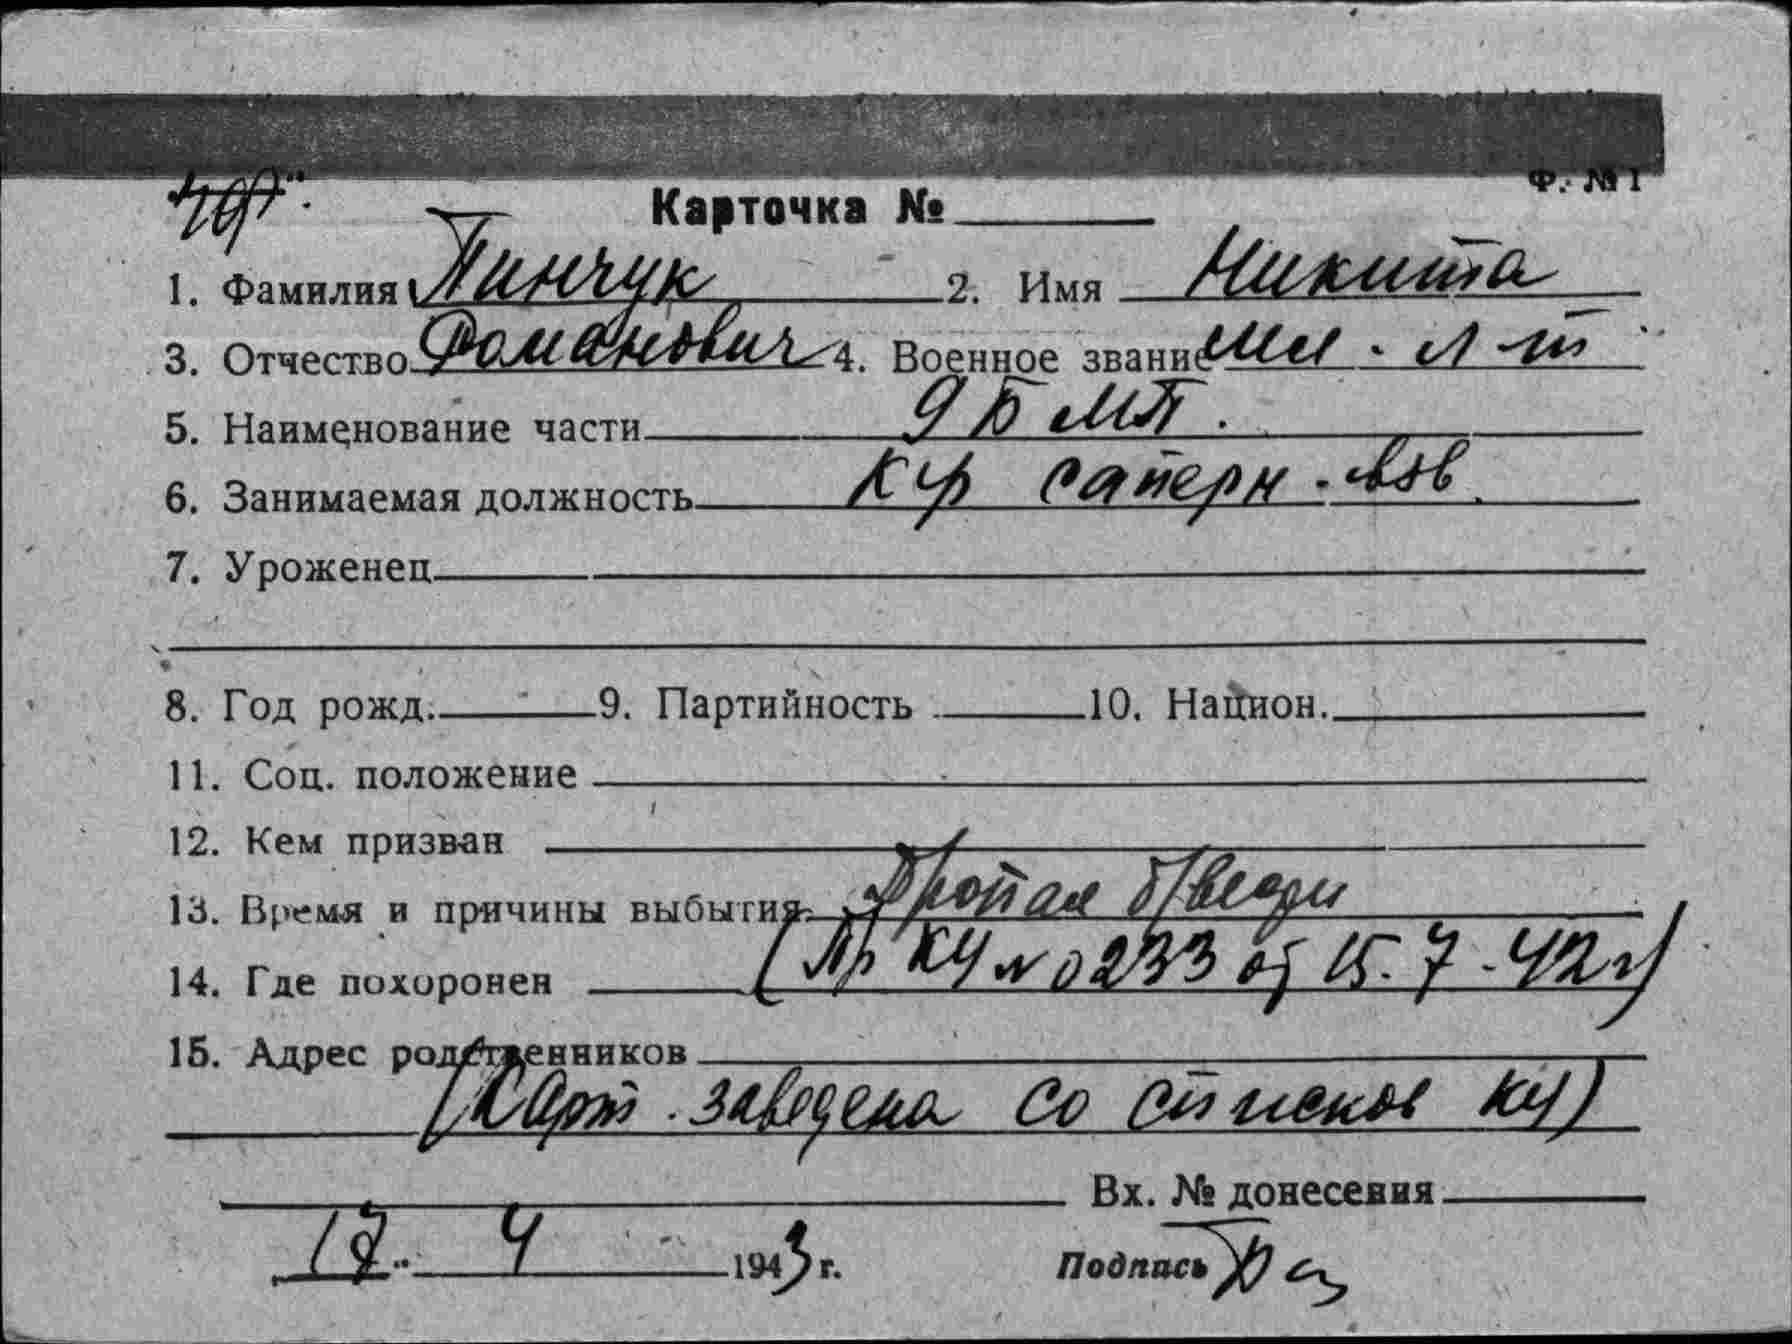 Ф. № 1
Карточка №
1. Фамилия Пинчук 2. Имя Никита
3. Отчество Романович 4. Военное звание мл. л-т
5. Наименование части 9 Б МП.
6. Занимаемая должность К-р саперн. взв.
7. Уроженец
8. Год рожд. 9. Партийность 10. Национ.
11. Соц. положение
12. Кем призван
13. Время и причины выбытия Пропал б/вести
14. Где похоронен (Пр КУ № 0233 от 15.7.42 г)
15. Адрес родственников
(Карт. заведена со списков КУ)
Вх. № донесения
4 1943 г. Подпись